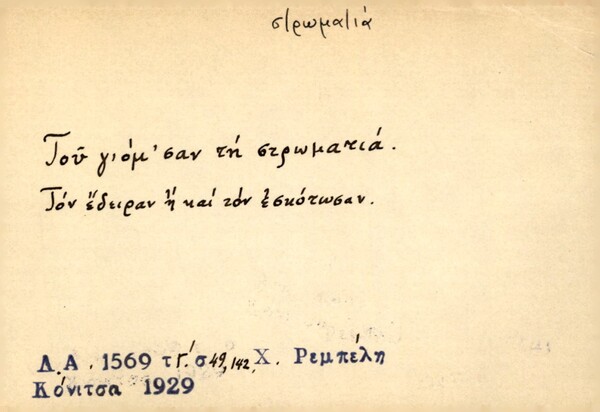 στρωματιά
Τοῦ γιόμ'σαν τή στρωματιά.
Τόν ἔδειραν ἤ καί τόν ἐσκότωσαν.
Λ.Α. 1569 τ Γ΄. σ 49, 142, Χ. Ρεμπέλη
Κόνιτσα 1929